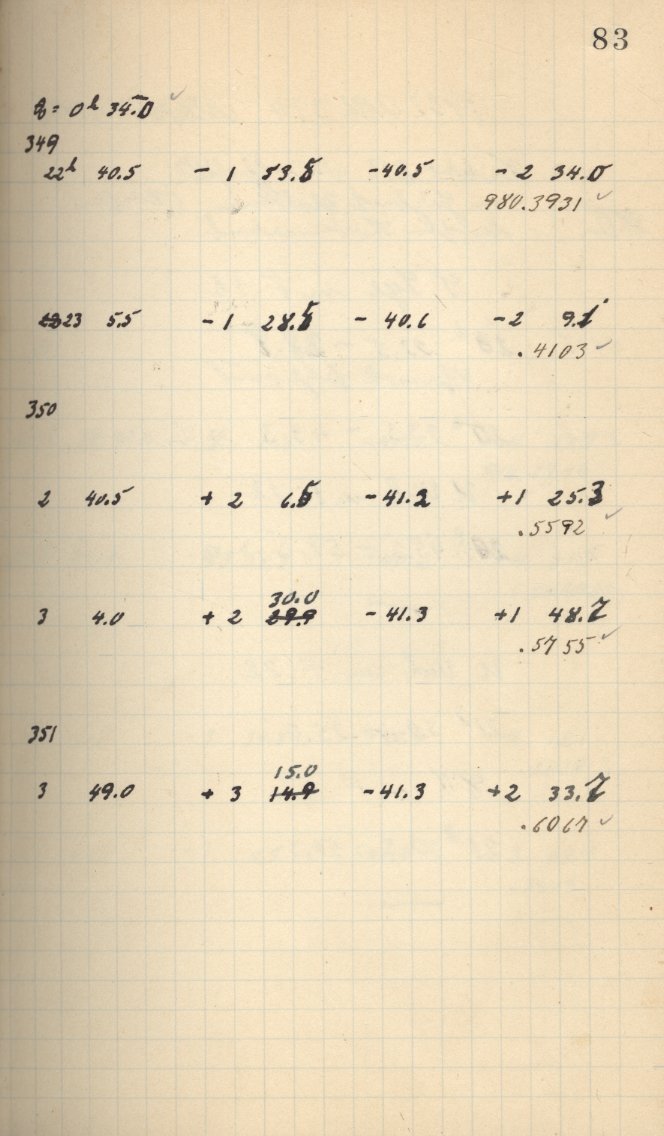 83
8 = 0h 34.0 ✓
349
22h 40.5 - 1 53.5 -40.5 - 2 34.0
980.3931 ✓
23 5.5 - 1 28.5 - 40.6 - 2 9.1
.4103 ✓
350
2 40.5 + 2 6.5 -41.2 +1 25.3
.5592 ✓
30.0
3 4.0 + 2 29.9 -41.3 +1 48.7
.5755 ✓
351
15.0
3 49.0 + 3 14.9 -41.3 +2 33.7
.6067 ✓